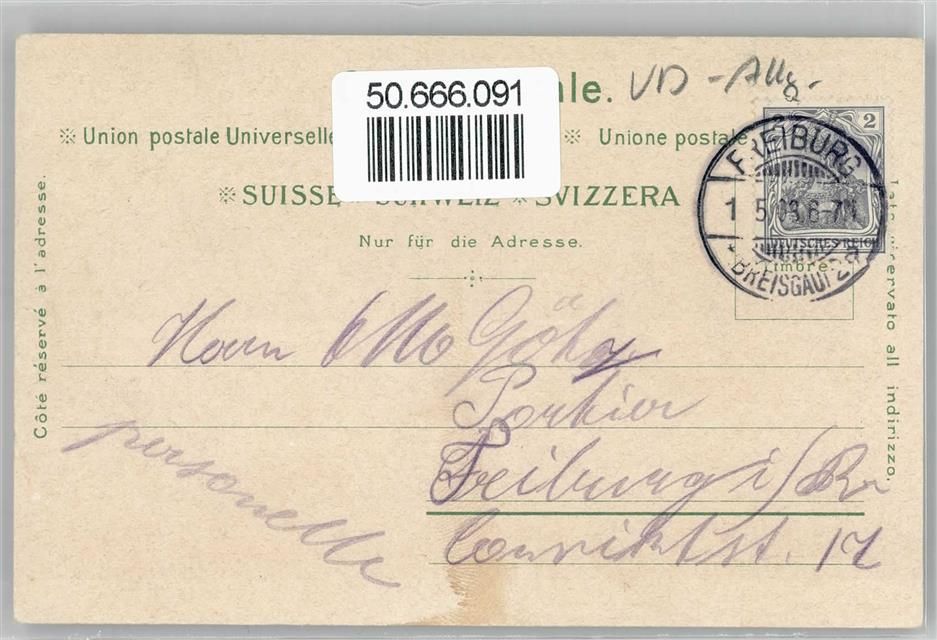 50.666.091
VD - Allg.
※ Union postale Universelle
※ Unione postale
※ SUISSE SCHWEIZ ※ SVIZZERA
Nur für die Adresse.
Côté réservé à l'adresse.
riservato all indirizzo.
2
DEUTSCHES REICH
FREIBURG
1 5 09 6-7N
BREISGAU
Timbre
Herrn Otto
Portier
Freiburg i/Br
Convictstr. 17
personelle